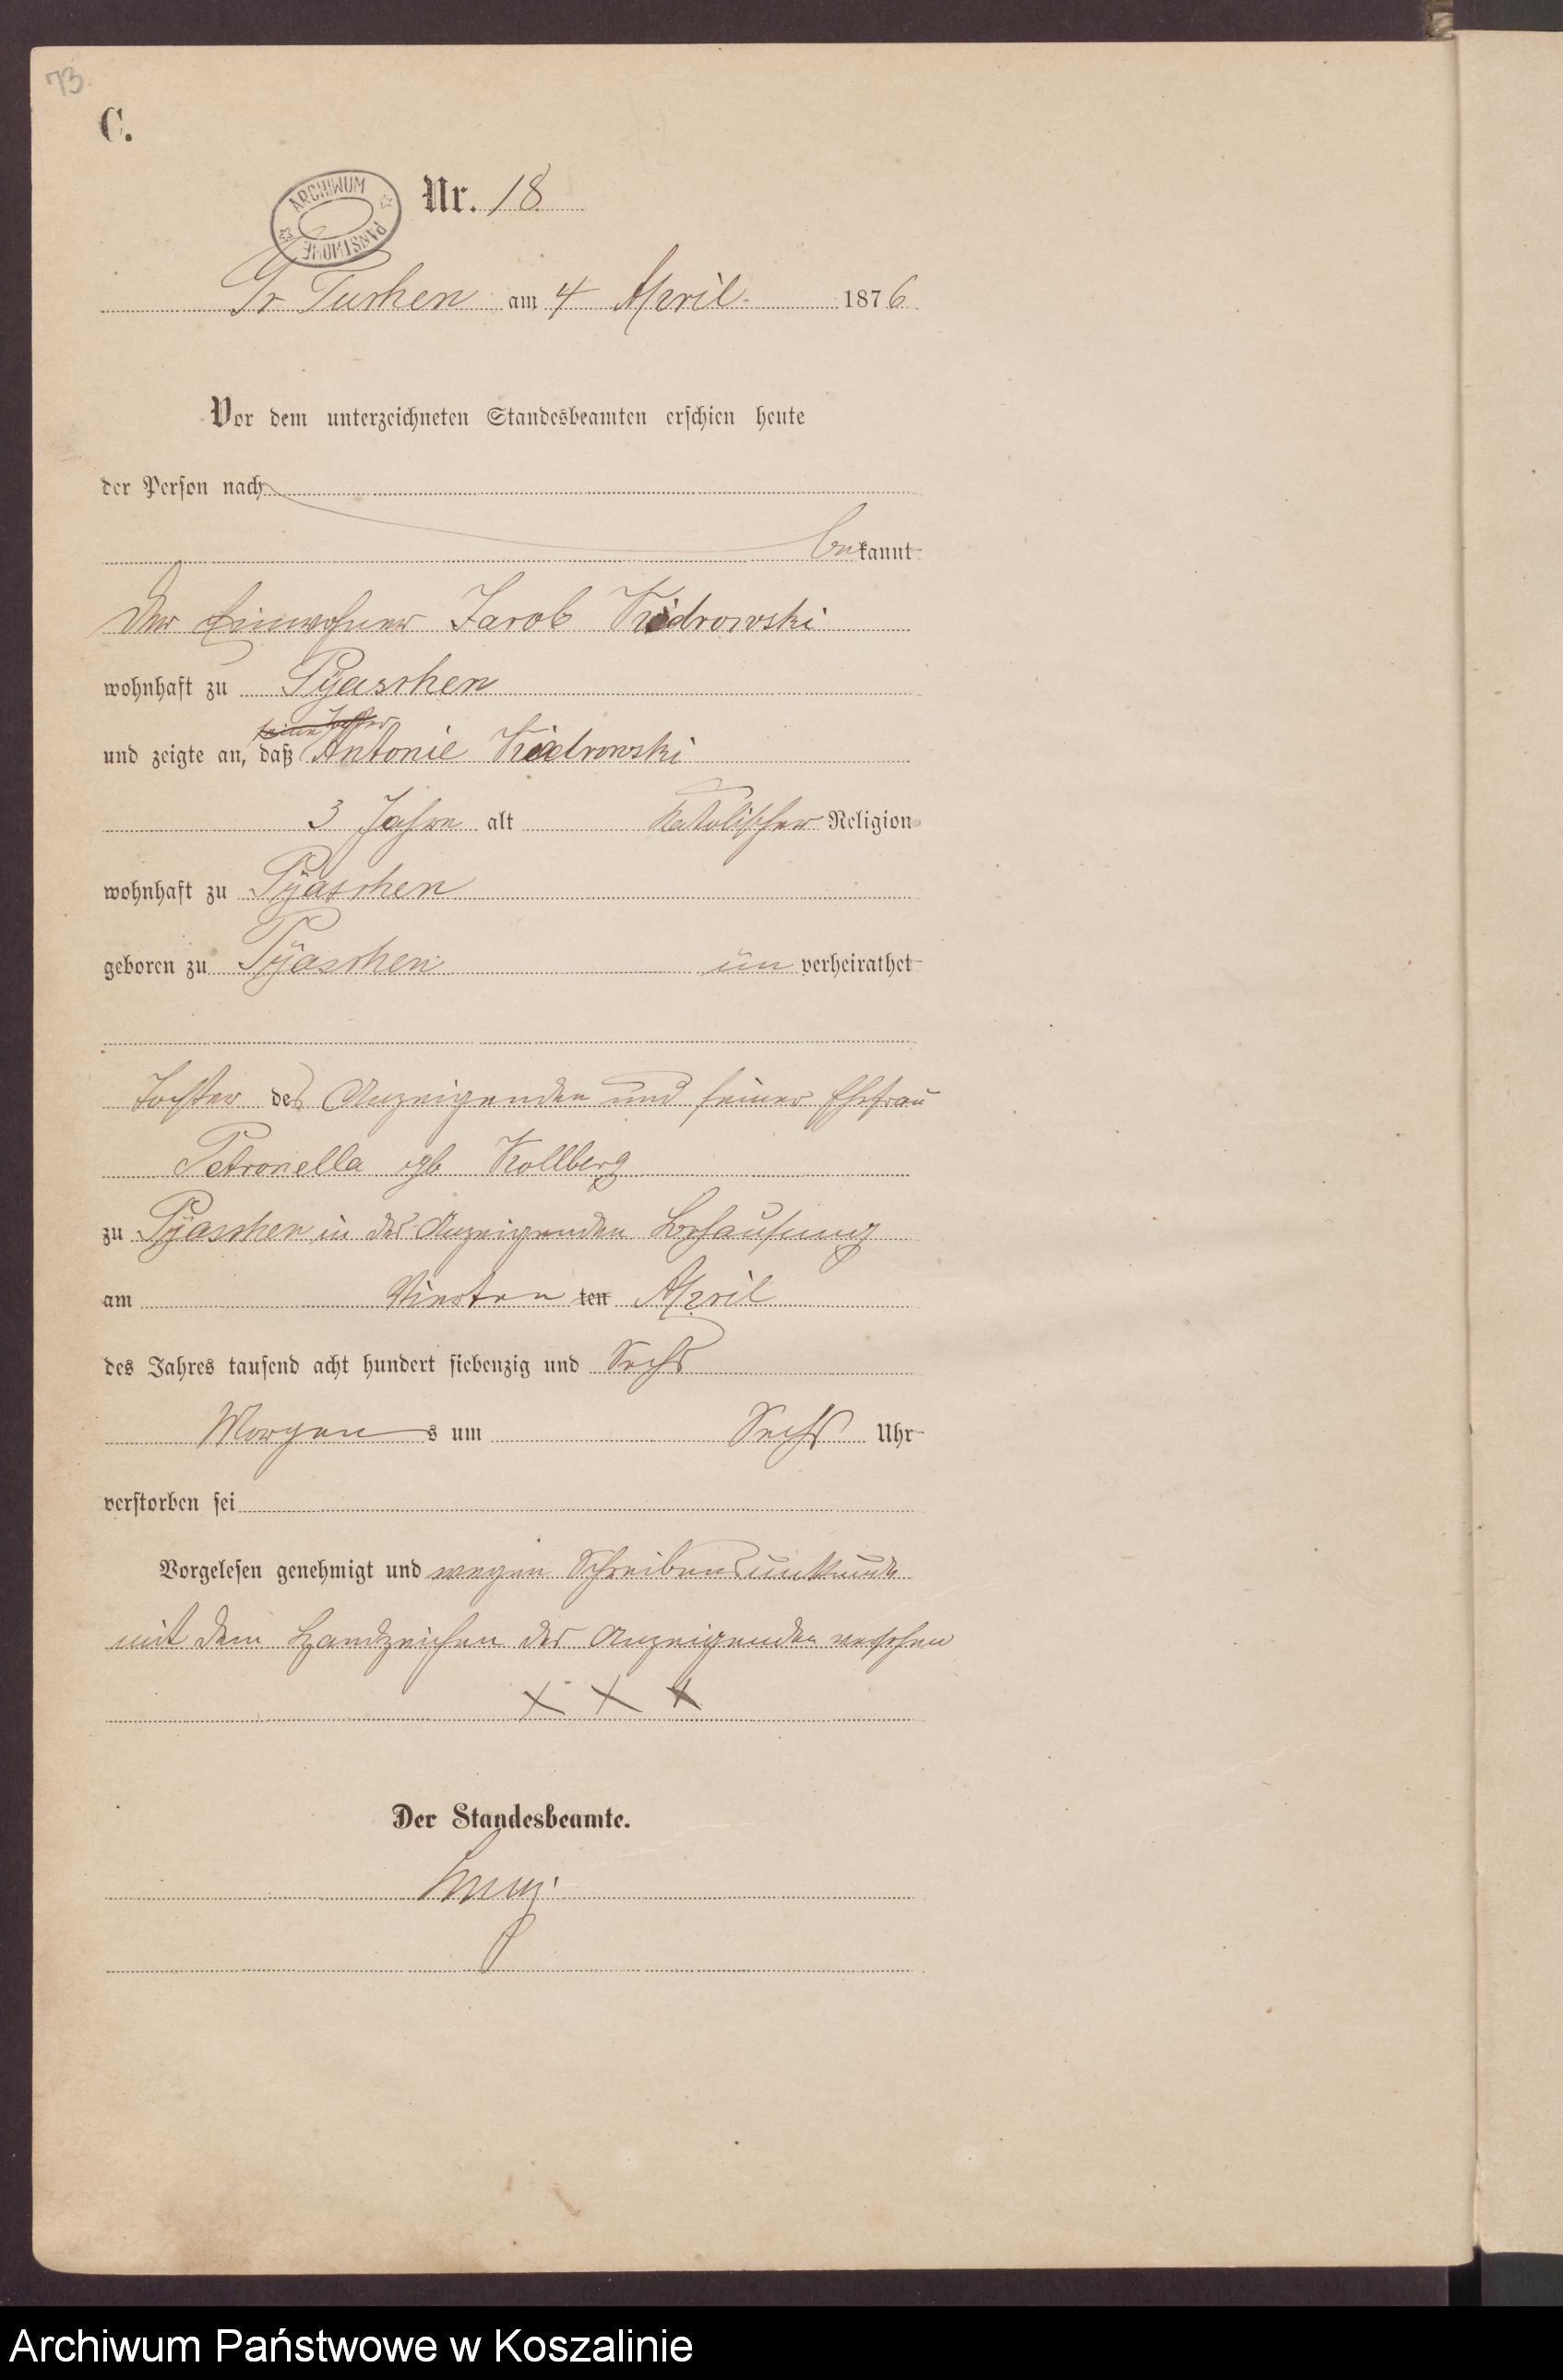 73.
C.
ARCHIWUM PAŃSTWOWE
Nr. 18
Gr Tuchen am 4 April 1876
Vor dem unterzeichneten Standesbeamten erschien heute
der Person nach
bekannt
der Einwohner Jacob Kiedrowski
wohnhaft zu Pyaschen
seine Tochter
und zeigte an, daß Antonie Kiedrowski
3 Jahre alt katolischer Religion
wohnhaft zu Pyaschen
geboren zu Pyaschen un verheirathet
Tochter des Anzeigenden und seiner Ehefrau
Petronella geb Kollberg
zu Pyaschen in des Anzeigenden Behausung
am Vierten ten April
des Jahres tausend acht hundert siebenzig und Sechs
Morgen s um Sechs Uhr
verstorben sei
Vorgelesen genehmigt und wegen Schreibensunkunde
mit dem Handzeichen des Anzeigenden versehen
X X X
Der Standesbeamte.
Archiwum Państwowe w Koszalinie